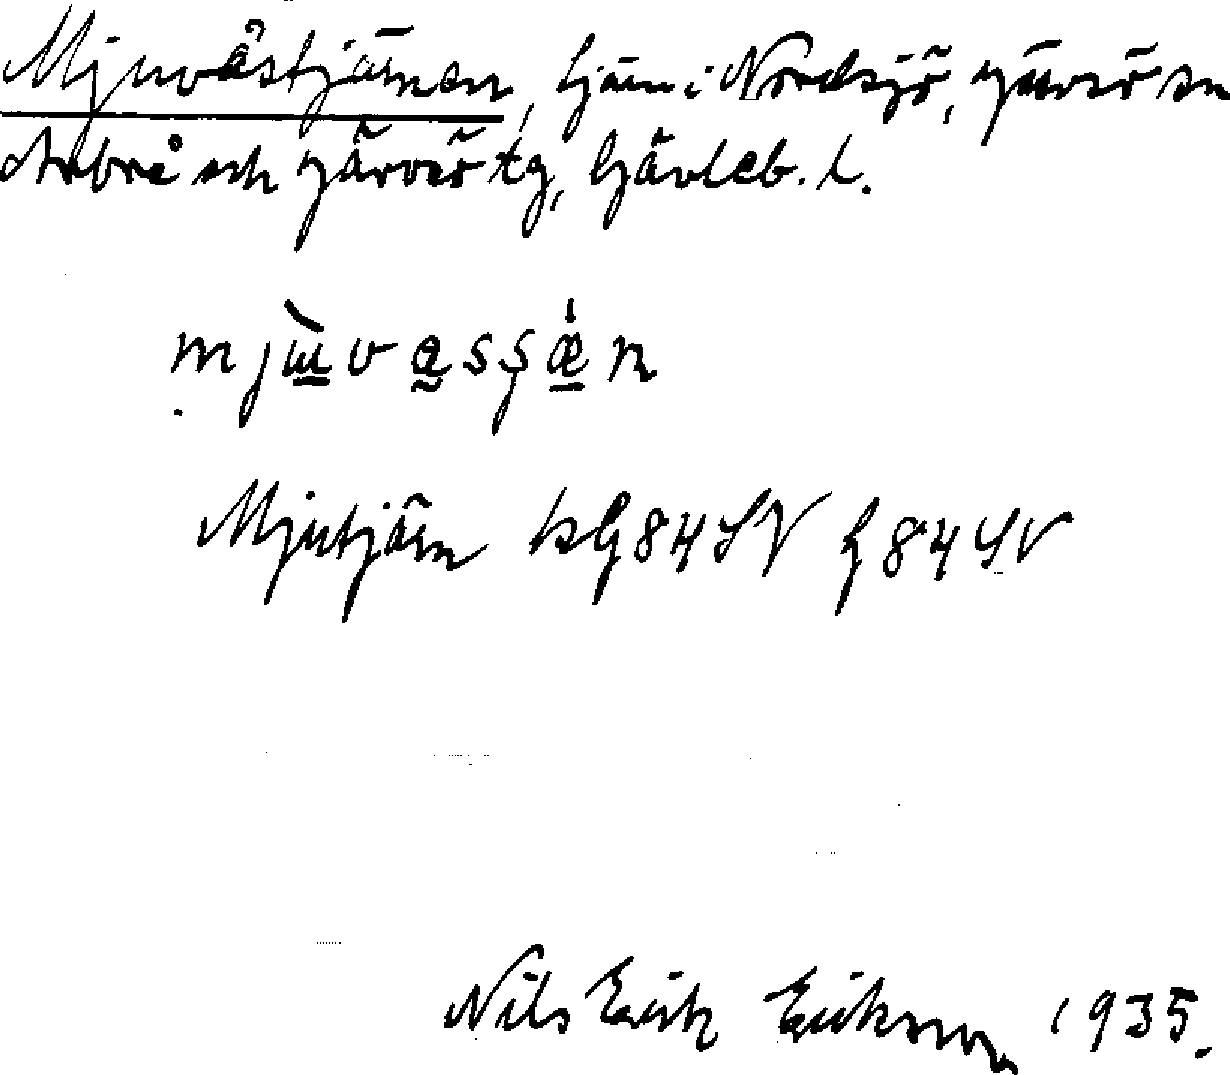 Mjuvåstjärnen, tjärn i Nordsjö, Järvsö sn
Arbrå och Järvsö tg, Gävleb. l.
mjɯ̀vassǽn
Mjutjärn kG 84 SV G 84 SV
Nils Erik Eriksson 1935.